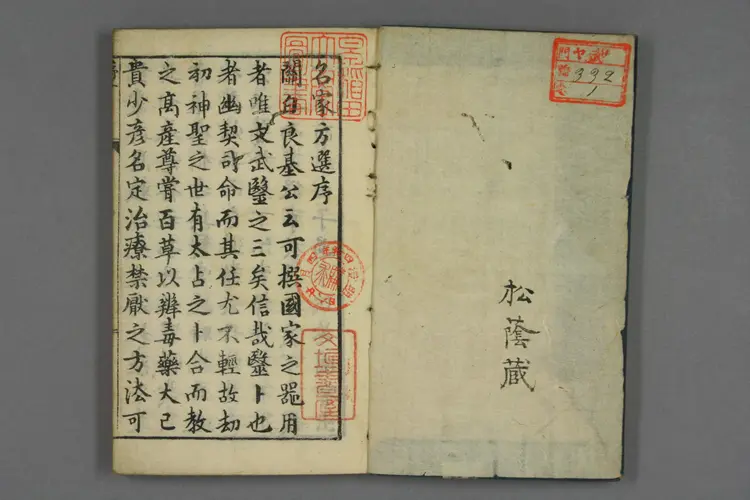 門 ヤ
392
1
松蔭蔵
名家方選序
關白良基公云可撰國家之器用
者唯文武醫之三矣信哉醫卜也
者幽契司命而其任尤不輕故劫
初神聖之世有太占之卜合而教
之高產尊嘗百草以辨毒藥大己
貴少彥名定治療禁厭之方法可